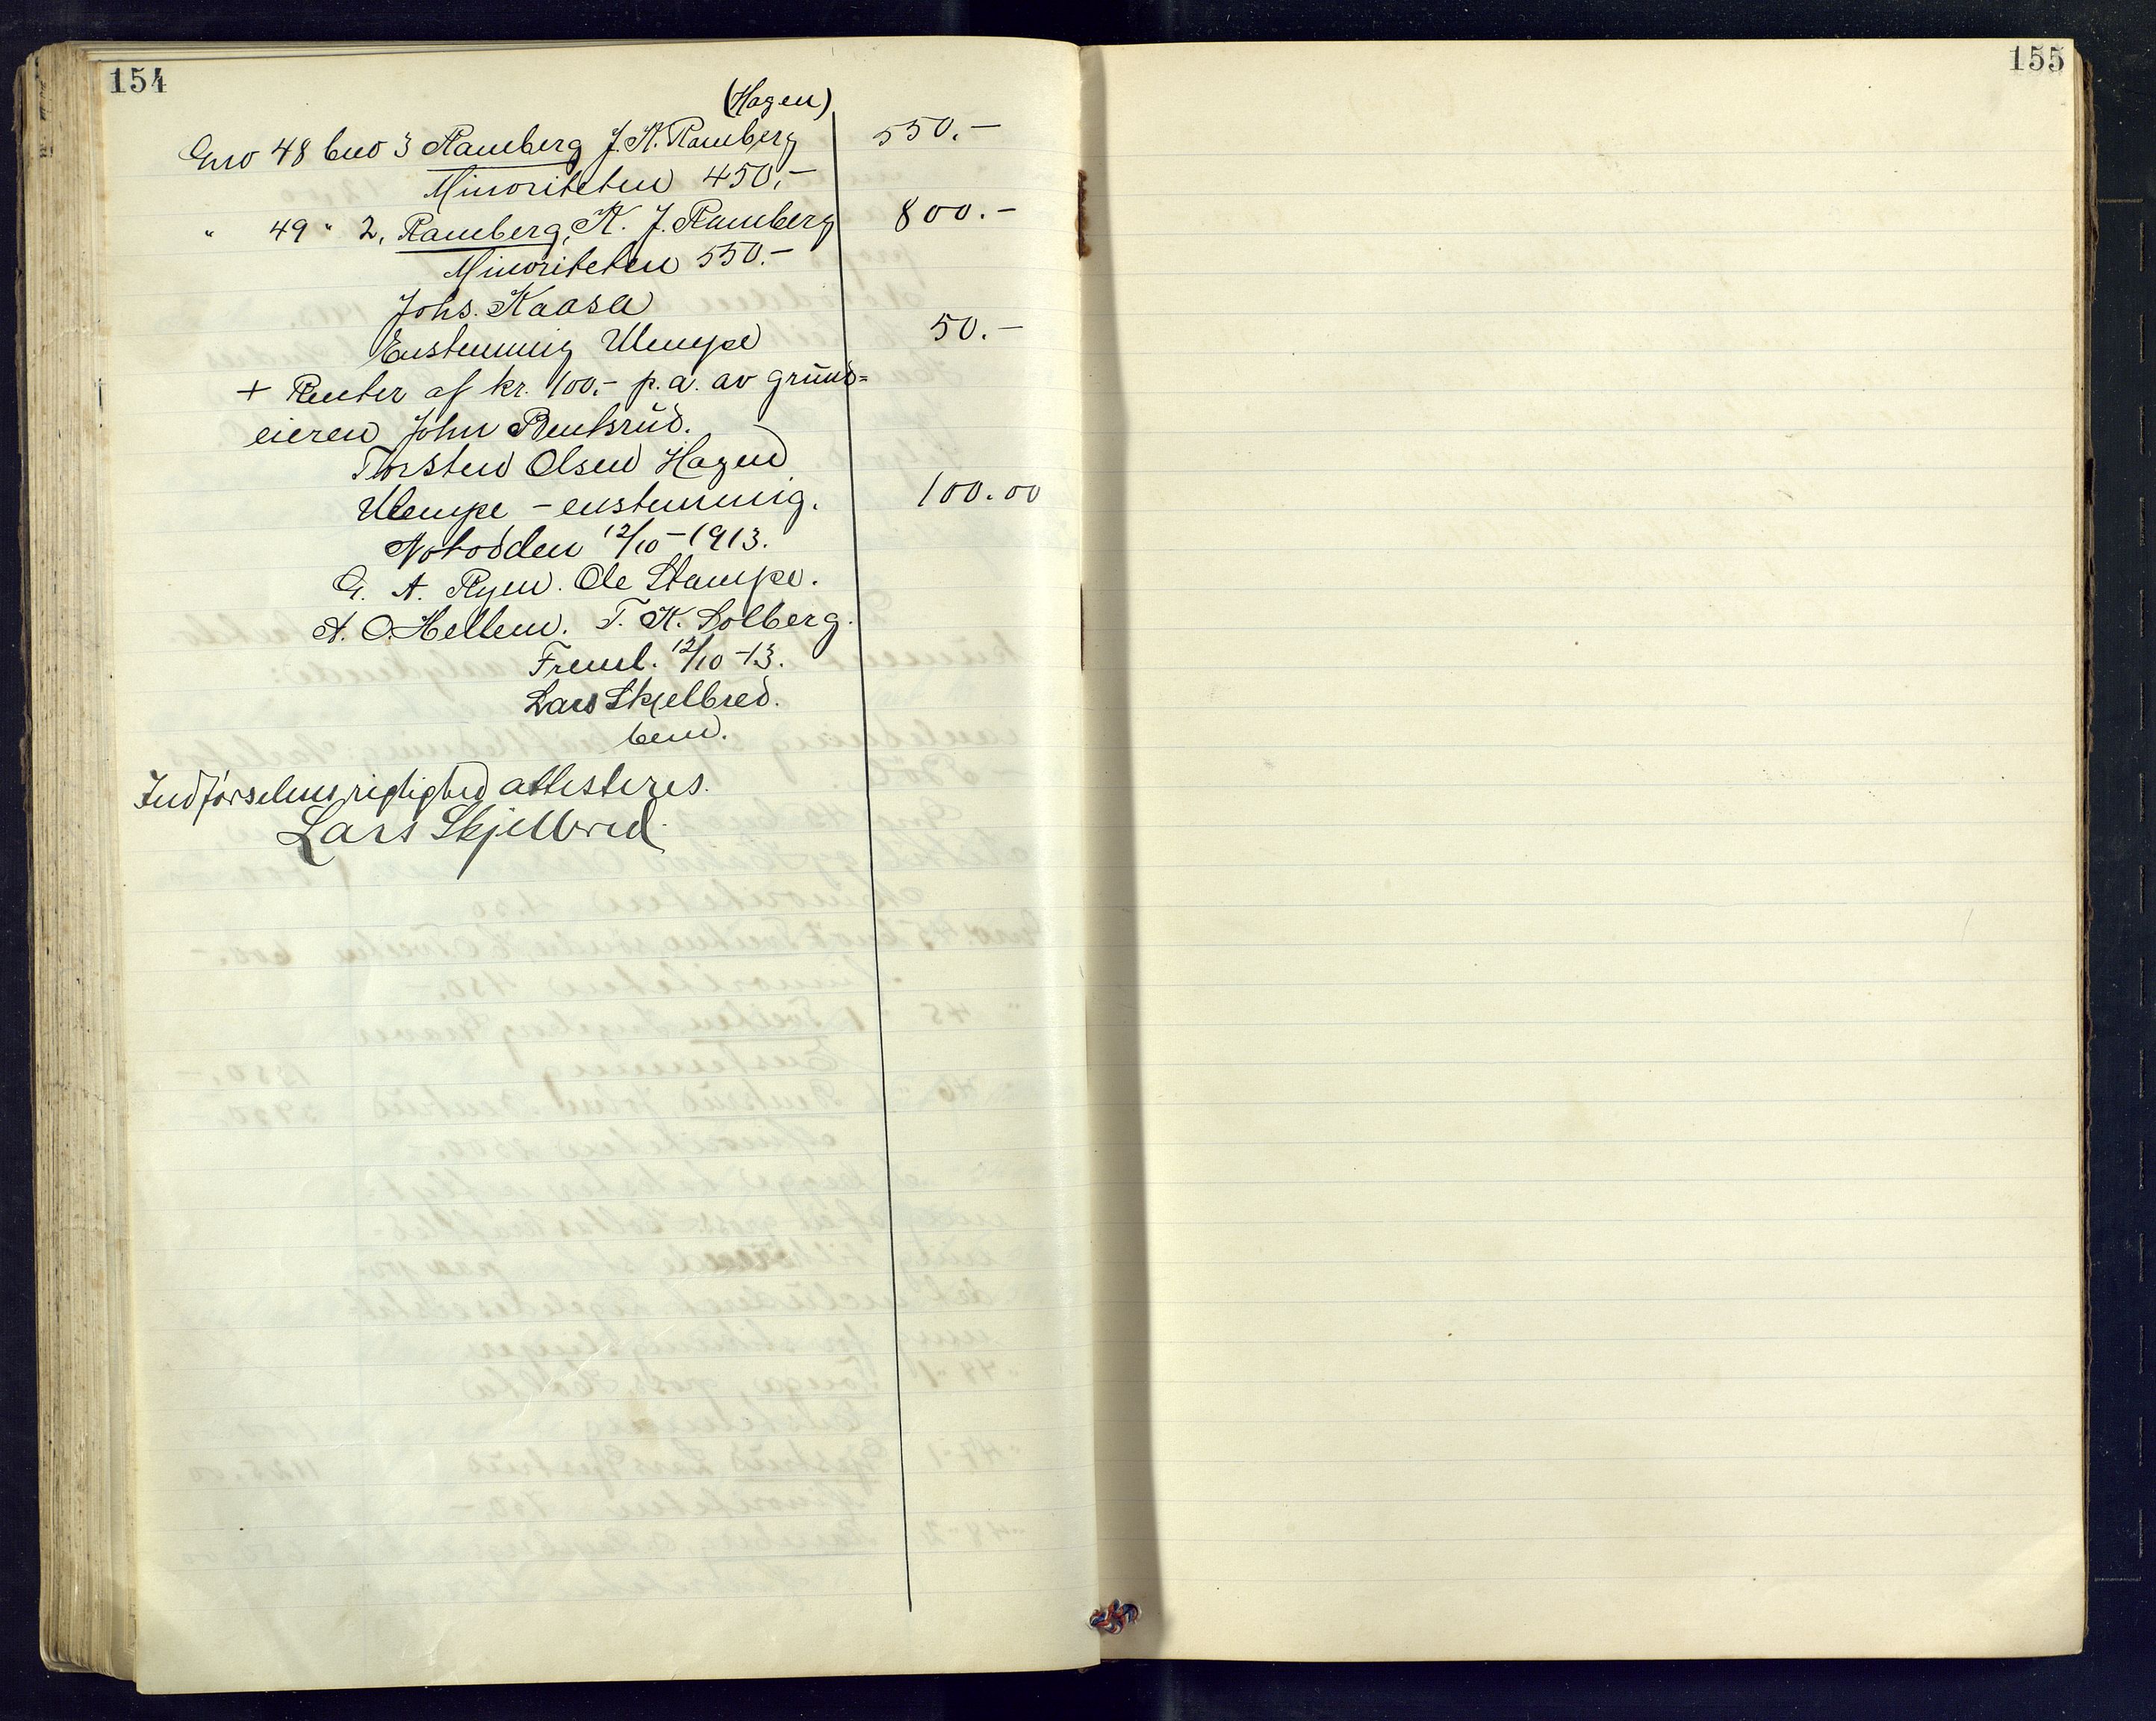 154
(Hagen)
Gno 48 bno 3 Ramberg J. K. Ramberg 550.-
Minoriteten 450,-
" 49 " 2, Ramberg, K. J. Ramberg 800.-
Minoriteten 550.-
Johs. Kaasa
Enstemmig Ulempe 50.-
+ Renter af kr. 100.- p.a. av grund=
eieren John Rentsrud.
Torsten Olsen Hagen
Ulempe - enstemmig. 100.00
Notodden 12/10-1913.
G. A. Ryen. Ole Stampe.
A. O. Hellem. T. K. Solberg.
Freml. 12/10-13.
Lars Skjelbred.
Indførselens rigtighed attesteres.
Lars Skjelbred
155